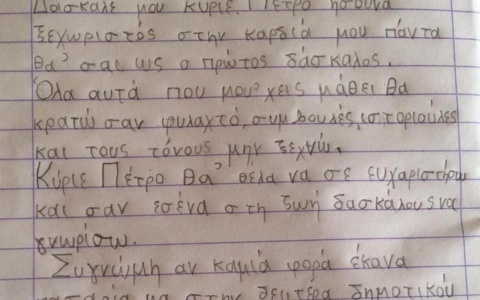 Δάσκαλέ μου κύριε Πέτρο ήσουνα
ξεχωριστός στην καρδιά μου πάντα
θα 'σαι ως ο πρώτος δάσκαλος.
Όλα αυτά που μου 'χεις μάθει θα
κρατώ σαν φυλαχτό, συμβουλές, ιστοριούλες
και τους τόνους μην ξεχνώ.
Κύριε Πέτρο θα 'θελα να σε ευχαριστήσω
και σαν εσένα στη ζωή δασκάλους να
γνωρίσω.
Συγνώμη αν καμία φορά έκανα
στην δευτέρα δημοτικού